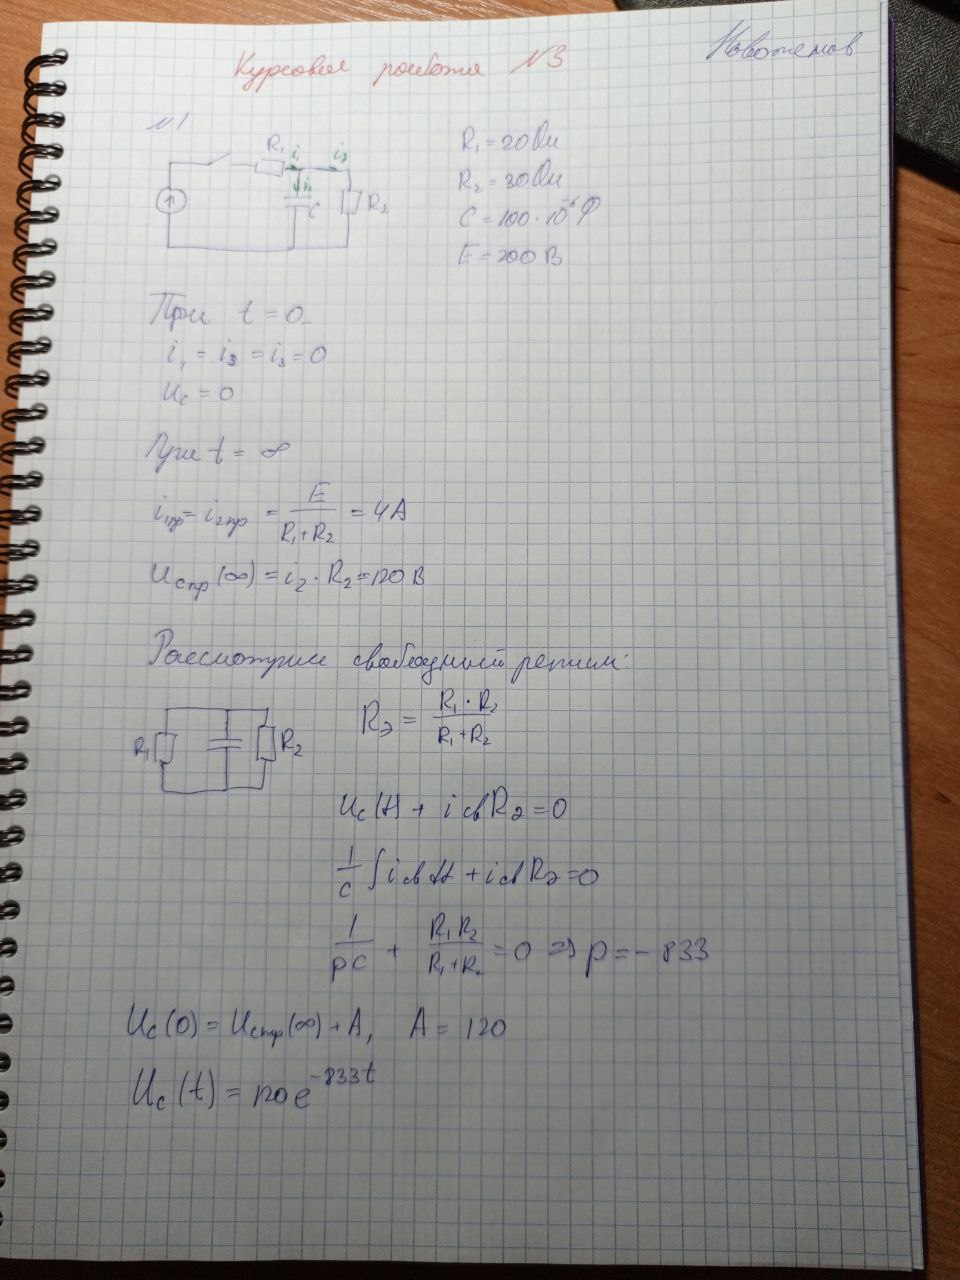 Курсовая работа №3
Новожемов
№1
R₁ i₁ i₂
C R₂
R₁ = 20 Ом
R₂ = 30 Ом
C = 100·10⁻⁶ Ф
E = 200 В
При t = 0₋
i₁ = i₂ = i₃ = 0
Uc = 0
При t = ∞
i₁пр = i₂пр = E / (R₁+R₂) = 4A
Uc пр (∞) = i₂ · R₂ = 120 В
Рассмотрим свободный режим:
R₁ R₂
Rэ = R₁ · R₂ / (R₁+R₂)
Uc(t) + iсв Rэ = 0
1/c ∫ iсв dt + iсв Rэ = 0
1/pC + R₁R₂ / (R₁+R₂) = 0 => p = -833
Uc(0) = Uспр(∞) + A, A = 120
Uc(t) = 120e^(-833t)